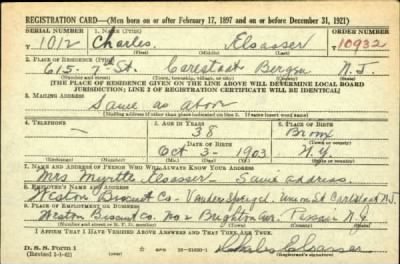 REGISTRATION CARD—(Men born on or after February 17, 1897 and on or before December 31, 1921)
SERIAL NUMBER 1. NAME (Print) ORDER NUMBER
1012 Charles Elsasser 10932
(First) (Middle) (Last)
2. PLACE OF RESIDENCE (Print)
615-7th St. Carlstadt Bergen N.J.
(Number and street) (Town, township, village, or city) (County) (State)
[THE PLACE OF RESIDENCE GIVEN ON THE LINE ABOVE WILL DETERMINE LOCAL BOARD
JURISDICTION; LINE 2 OF REGISTRATION CERTIFICATE WILL BE IDENTICAL]
3. MAILING ADDRESS
Same as above
[Mailing address if other than place indicated on line 2. If same insert word same]
4. TELEPHONE 5. AGE IN YEARS 6. PLACE OF BIRTH
— 38 Bronx
DATE OF BIRTH (Town or county)
Oct 3- 1903 N.Y.
(Exchange) (Number) (Mo.) (Day) (Yr.) (State or country)
7. NAME AND ADDRESS OF PERSON WHO WILL ALWAYS KNOW YOUR ADDRESS
Mrs Myrtle Elsasser - Same address
8. EMPLOYER'S NAME AND ADDRESS
Weston Biscuit Co- Union St Carlstadt N.J.
9. PLACE OF EMPLOYMENT OR BUSINESS
Weston Biscuit Co. No 2 Brighton Ave. Passaic N.J.
(Number and street or R. F. D. number) (Town) (County) (State)
I AFFIRM THAT I HAVE VERIFIED ABOVE ANSWERS AND THAT THEY ARE TRUE.
D. S. S. Form 1
(Revised 1-1-42) Charles Elsasser